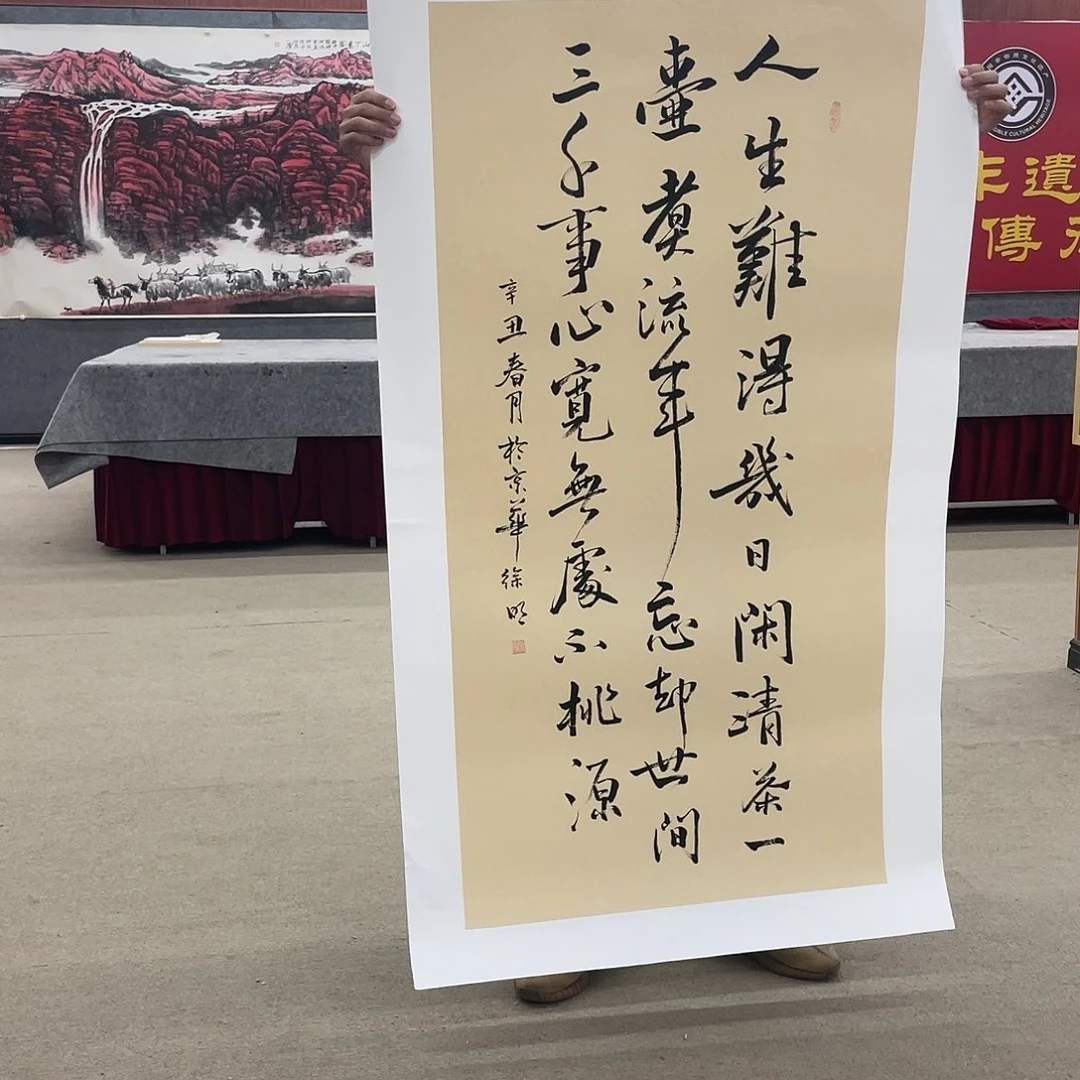 人生難得幾日閑清茶一
壷煑流年忘却世間
三千事心寬無處不桃源
辛丑春月於京華徐明
遺
傳
IBLE CULTURAL HERITAGE